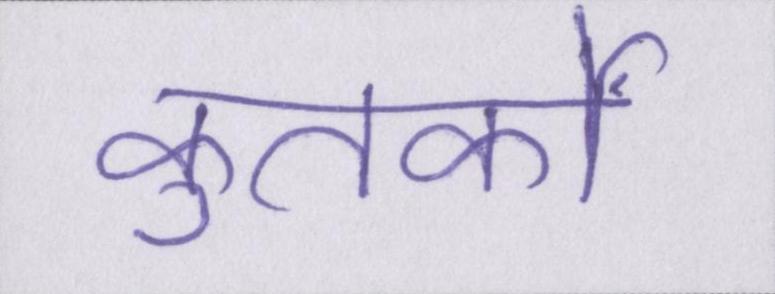 कुतर्कों